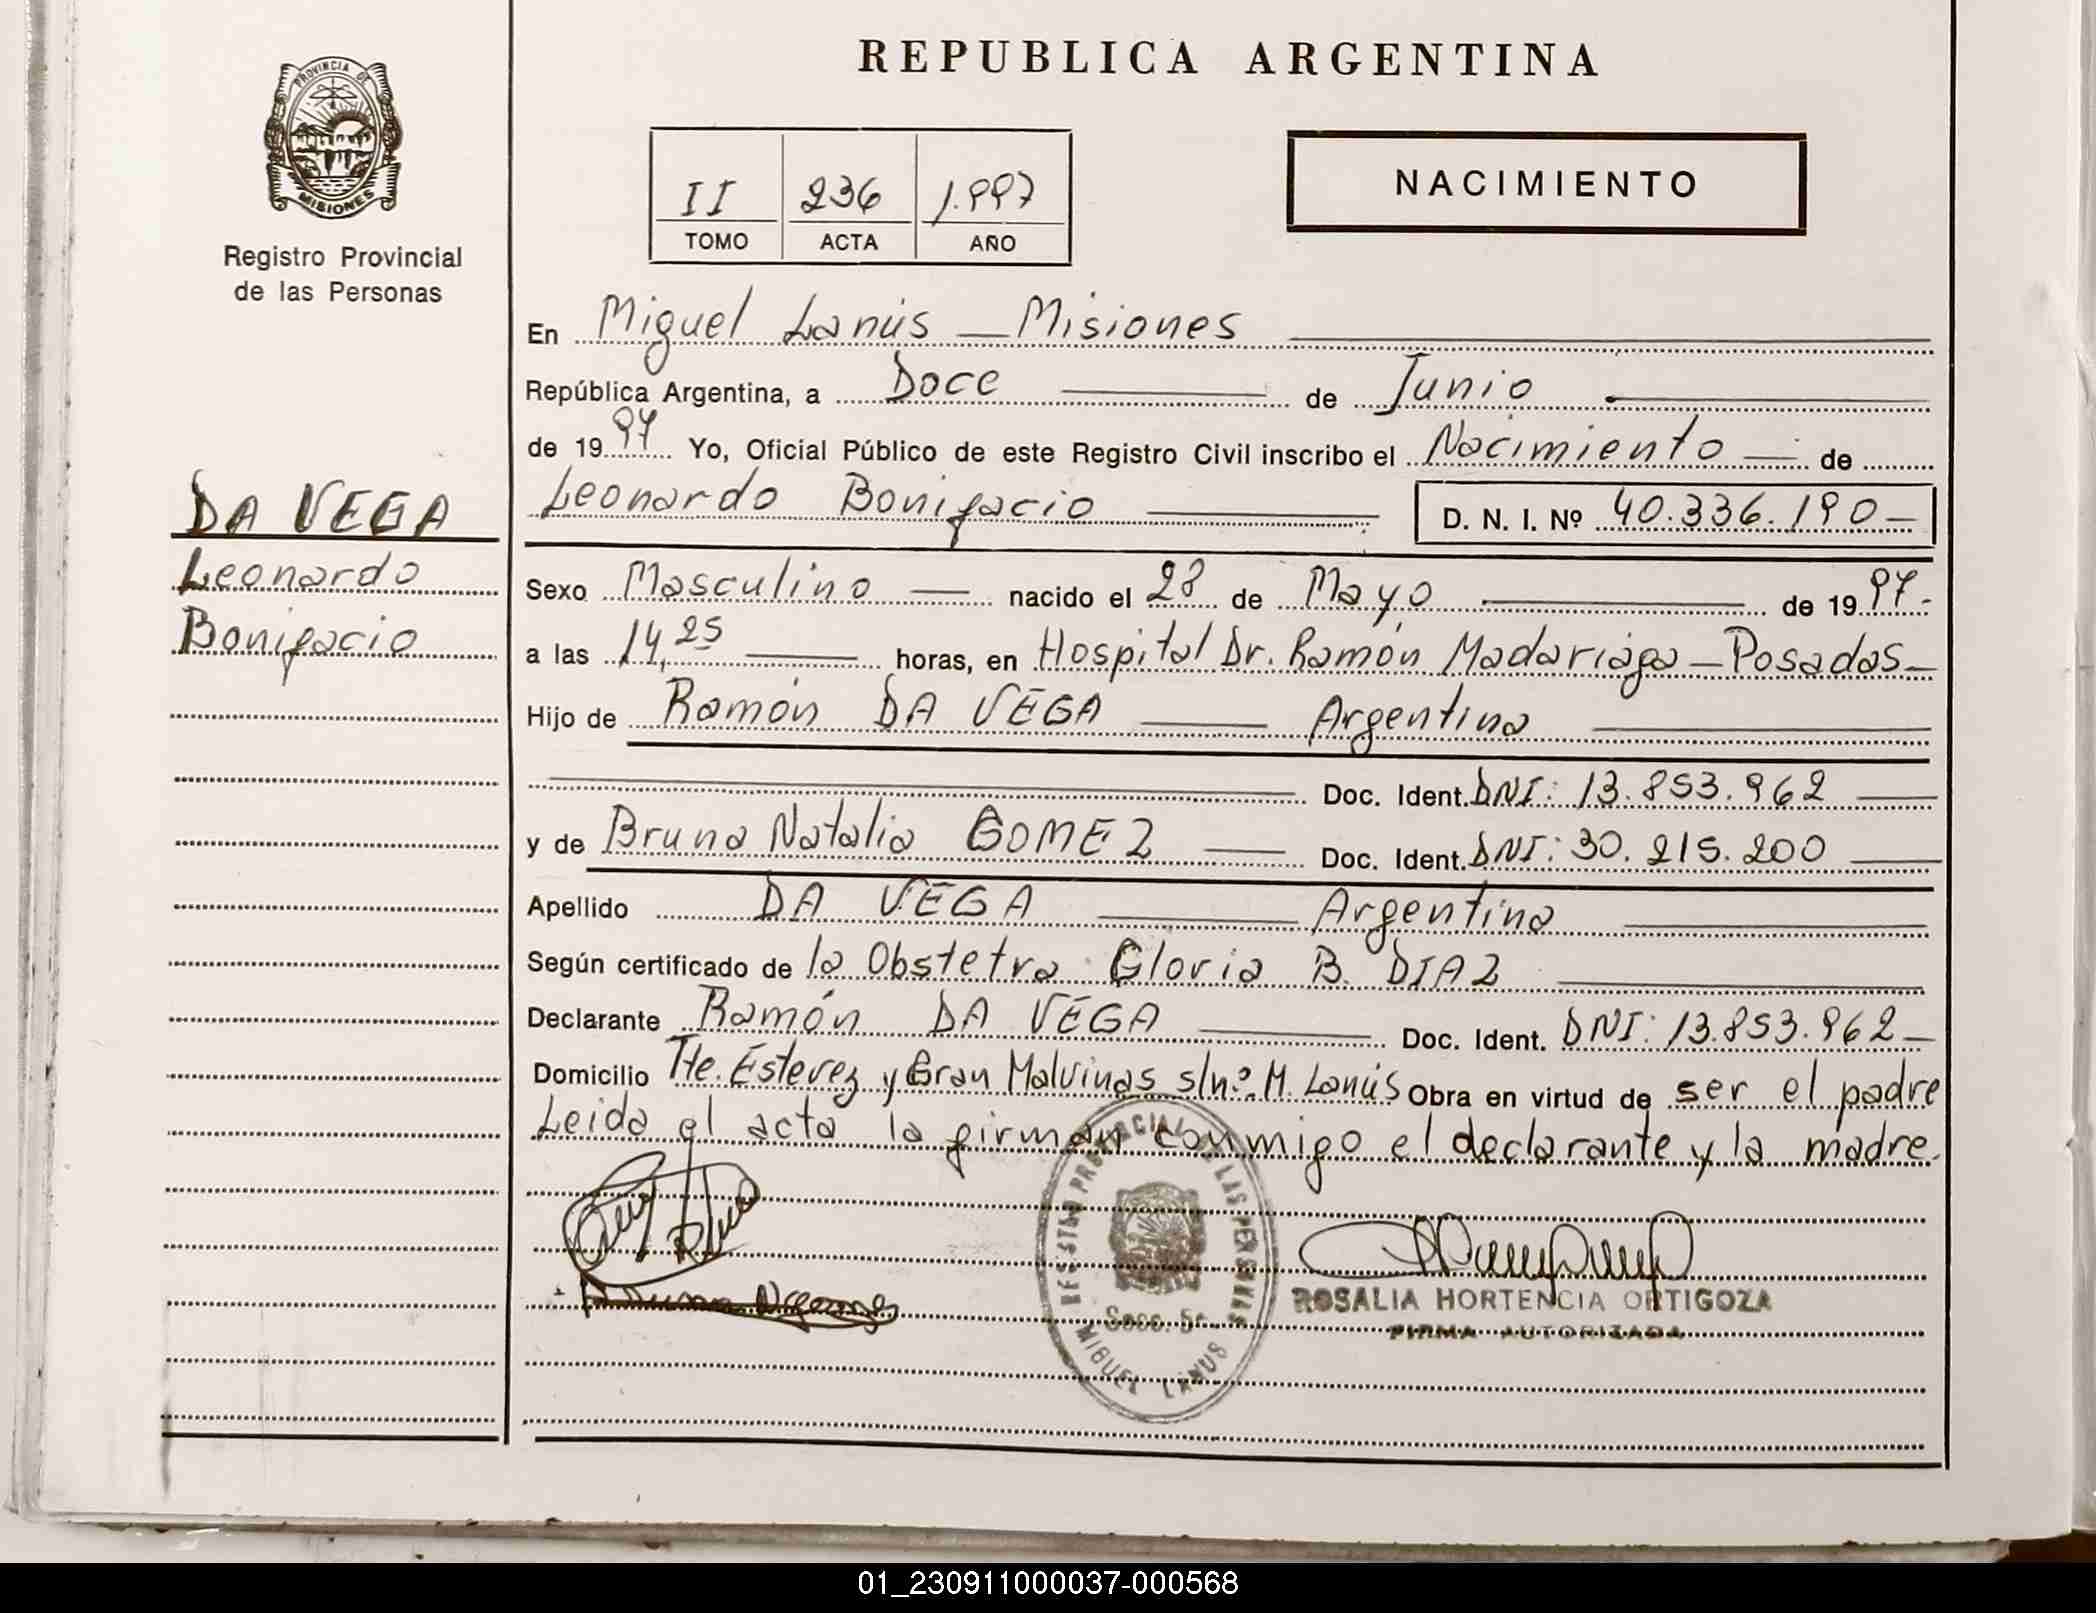 REPUBLICA ARGENTINA
PROVINCIA DE
MISIONES
Registro Provincial
de las Personas
II 236 1.997
TOMO ACTA AÑO
NACIMIENTO
DA VEGA
Leonardo
Bonifacio
En Miguel Lanús — Misiones
República Argentina, a Doce de Junio
de 1997 Yo, Oficial Público de este Registro Civil inscribo el Nacimiento — de
Leonardo Bonifacio D. N. I. Nº 40.336.190 —
Sexo Masculino — nacido el 28 de Mayo de 1997.-
a las 14,25 horas, en Hospital Dr. Ramón Madariaga — Posadas —
Hijo de Ramón DA VEGA Argentina
Doc. Ident. DNI: 13.853.962
y de Bruna Natalia GOMEZ Doc. Ident. DNI: 30.215.200
Apellido DA VEGA Argentina
Según certificado de la Obstetra Gloria B. DIAZ
Declarante Ramón DA VEGA Doc. Ident. DNI: 13.853.962 —
Domicilio Tte. Estevez y Gran Malvinas s/nº. M. Lanús Obra en virtud de ser el padre
Leida el acta la firman conmigo el declarante y la madre.
REGISTRO PROVINCIAL DE LAS PERSONAS
Secc. 5a
MIGUEL LANUS
ROSALIA HORTENCIA ORTIGOZA
FIRMA AUTORIZADA
01_230911000037-000568